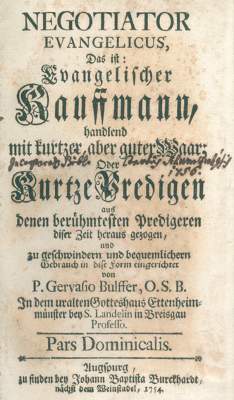 NEGOTIATOR
EVANGELICUS,
Das ist:
Evangelischer
Kauffmann,
handlend
mit kurtzer, aber guter Waar;
Oder
Kurtze Predigen
aus
denen berühmtesten Predigeren
diser Zeit heraus gezogen,
und
zu geschwindern und bequemlichern
Gebrauch in dise Form eingerichtet
von
P. Gervasio Bulffer, O. S. B.
In dem uralten Gotteshaus Ettenheim-
münster bey S. Landelin in Breisgau
Professo.
Pars Dominicalis.
Augspurg,
zu finden bey Johann Baptista Burckhardt,
nächst dem Weinstadel, 1754.